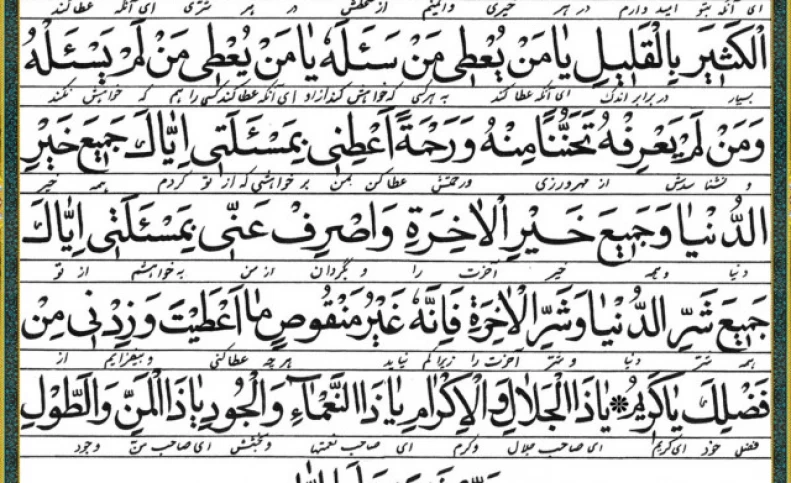 ای آنکه بتو امید دارم در هر خیری و ایمنم از خشمش در هر شری ای آنکه عطا کند
الْكَثيرَ بِالْقَليلِ يا مَنْ يُعْطى مَنْ سَئَلَهُ يا مَنْ يُعْطى مَنْ لَمْ يَسْئَلْهُ
بسیار در برابر اندک ای آنکه عطا کند به هرکس که خواهش کند از او ای آنکه عطا کند کسی را هم که خواهش نکند
وَمَنْ لَمْ يَعْرِفْهُ تَحَنُّنًا مِنْهُ وَرَحْمَةً اَعْطِنى بِمَسْئَلَتى اِيّاكَ جَميعَ خَيْرِ
و نشناسدش از مهرورزی و رحمتش عطا کن بمن بر خواهشی که از تو کردم همه خیر
الدُّنْيا وَجَميعَ خَيْرِ الْاخِرَةِ وَاصْرِفْ عَنّى بِمَسْئَلَتى اِيّاكَ
دنیا و همه خیر آخرت را و بگردان از من به خواهشم از تو
جَميعَ شَرِّ الدُّنْيا وَشَرِّ الْاخِرَةِ فَاِنَّهُ غَيْرُ مَنْقُوصٍ ما اَعْطَيْتَ وَزِدْنى مِنْ
همه شر دنیا و شر آخرت را زیرا کم نیاید هر چه عطا کنی و بیفزایم از
فَضْلِكَ يا كَريمُ ❋ يا ذَا الْجَلالِ وَالْاِكْرامِ يا ذَا النَّعْماءِ وَالْجُودِ يا ذَا الْمَنِّ وَالطَّوْلِ
فضل خود ای کریم ای صاحب جلال و کرم ای صاحب نعمتها و بخشش ای صاحب منّ وجود